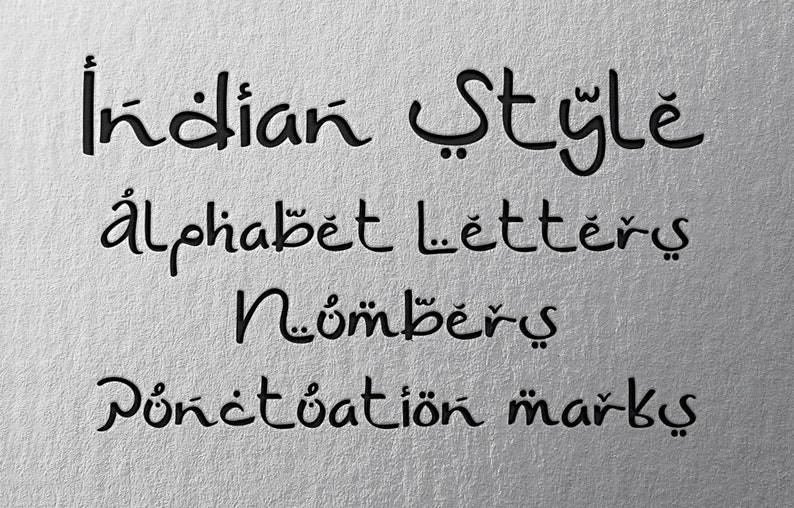 Indian Style
Alphabet Letters
Numbers
Punctuation marks